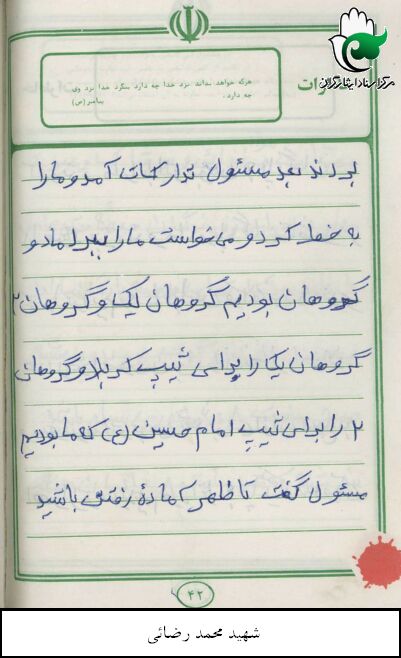 مرکز اسناد ایثارگران
خاطرات
هرکه خواهد بداند نزد خدا چه دارد بنگرد خدا نزد وی
چه دارد.
پیامبر (ص)
بردند بعد مسئول تدارکات آمد و ما را
به خط کرد و می خواست ما را ببرد اما دو
گروهان بودیم گروهان یک و گروهان ۲
گروهان یک را برای تیپ کربلا و گروهان
۲ را برای تیپ امام حسین (ع) که ما بودیم
مسئول گفت تا ظهر آمادۀ رفتن باشید
۴۲
شهید محمد رضائی